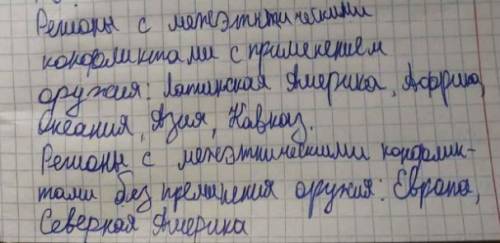 Регионы с межэтническими
конфликтами с применением
оружия: Латинская Америка, Африка,
Океания, Азия, Кавказ.
Регионы с межэтническими конфлик-
тами без преминения оружия: Европа,
Северная Америка